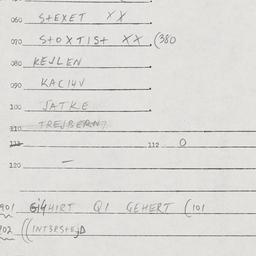 060 S+EXET XX
070 S+OXTIST XX (380
080 KEJLEN
090 KACI4V
100 JATKE
110 TREJBERN?
112 0
120 —
901 HIRT Q1 GEHERT (101
902 ((INT3RS+EJD